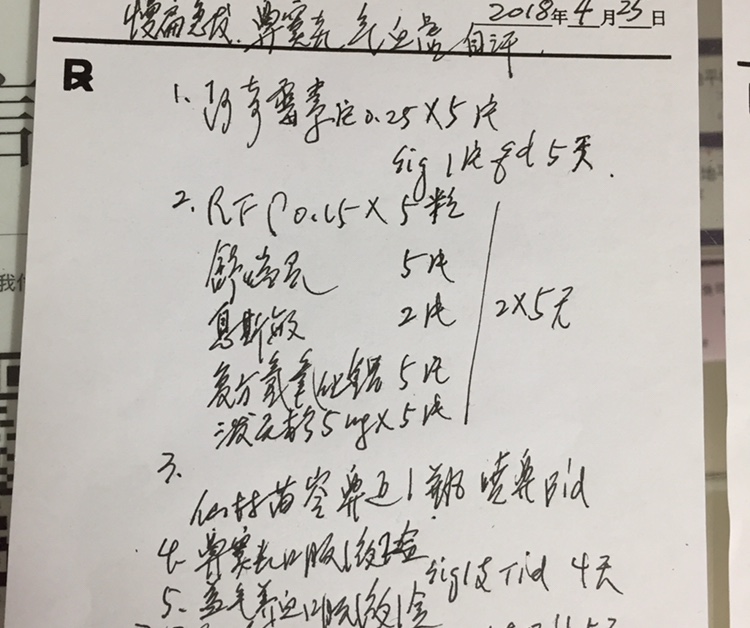 慢扁急发、鼻窦炎、气血虚 自评 2018年4月25日
R
1. 阿奇霉素片0.25×5片
sig 1片 qd 5天.
2. RFP 0.15×5粒
舒喘灵 5片
息斯敏 2片
2×5元
复方氢氧化铝 5片
泼尼松5mg×5片
3.
仙林黄芩鼻 1瓶 喷鼻 Bid
4. 鼻窦炎口服液1盒
sig 1支 Tid 4天
5. 益气养血口服液1盒